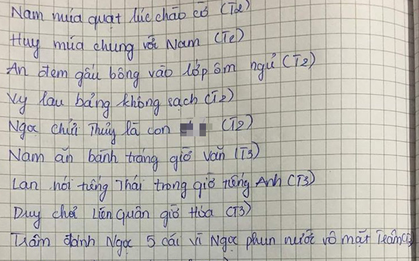 Nam múa quạt lúc chào cô (T2)
Huy múa chung với Nam (T2)
An đem gấu bông vào lớp ôm ngủ (T2)
Vy lau bảng không sạch (T2)
Ngọc chửi Thủy là con (T2)
Nam ăn bánh tráng giờ văn (T3)
Lan nói tiếng Thái trong giờ tiếng Anh (T3)
Duy chơi Liên Quân giờ Hóa (T3)
Trâm đánh Ngọc 5 cái vì Ngọc phun nước vô mặt Trâm